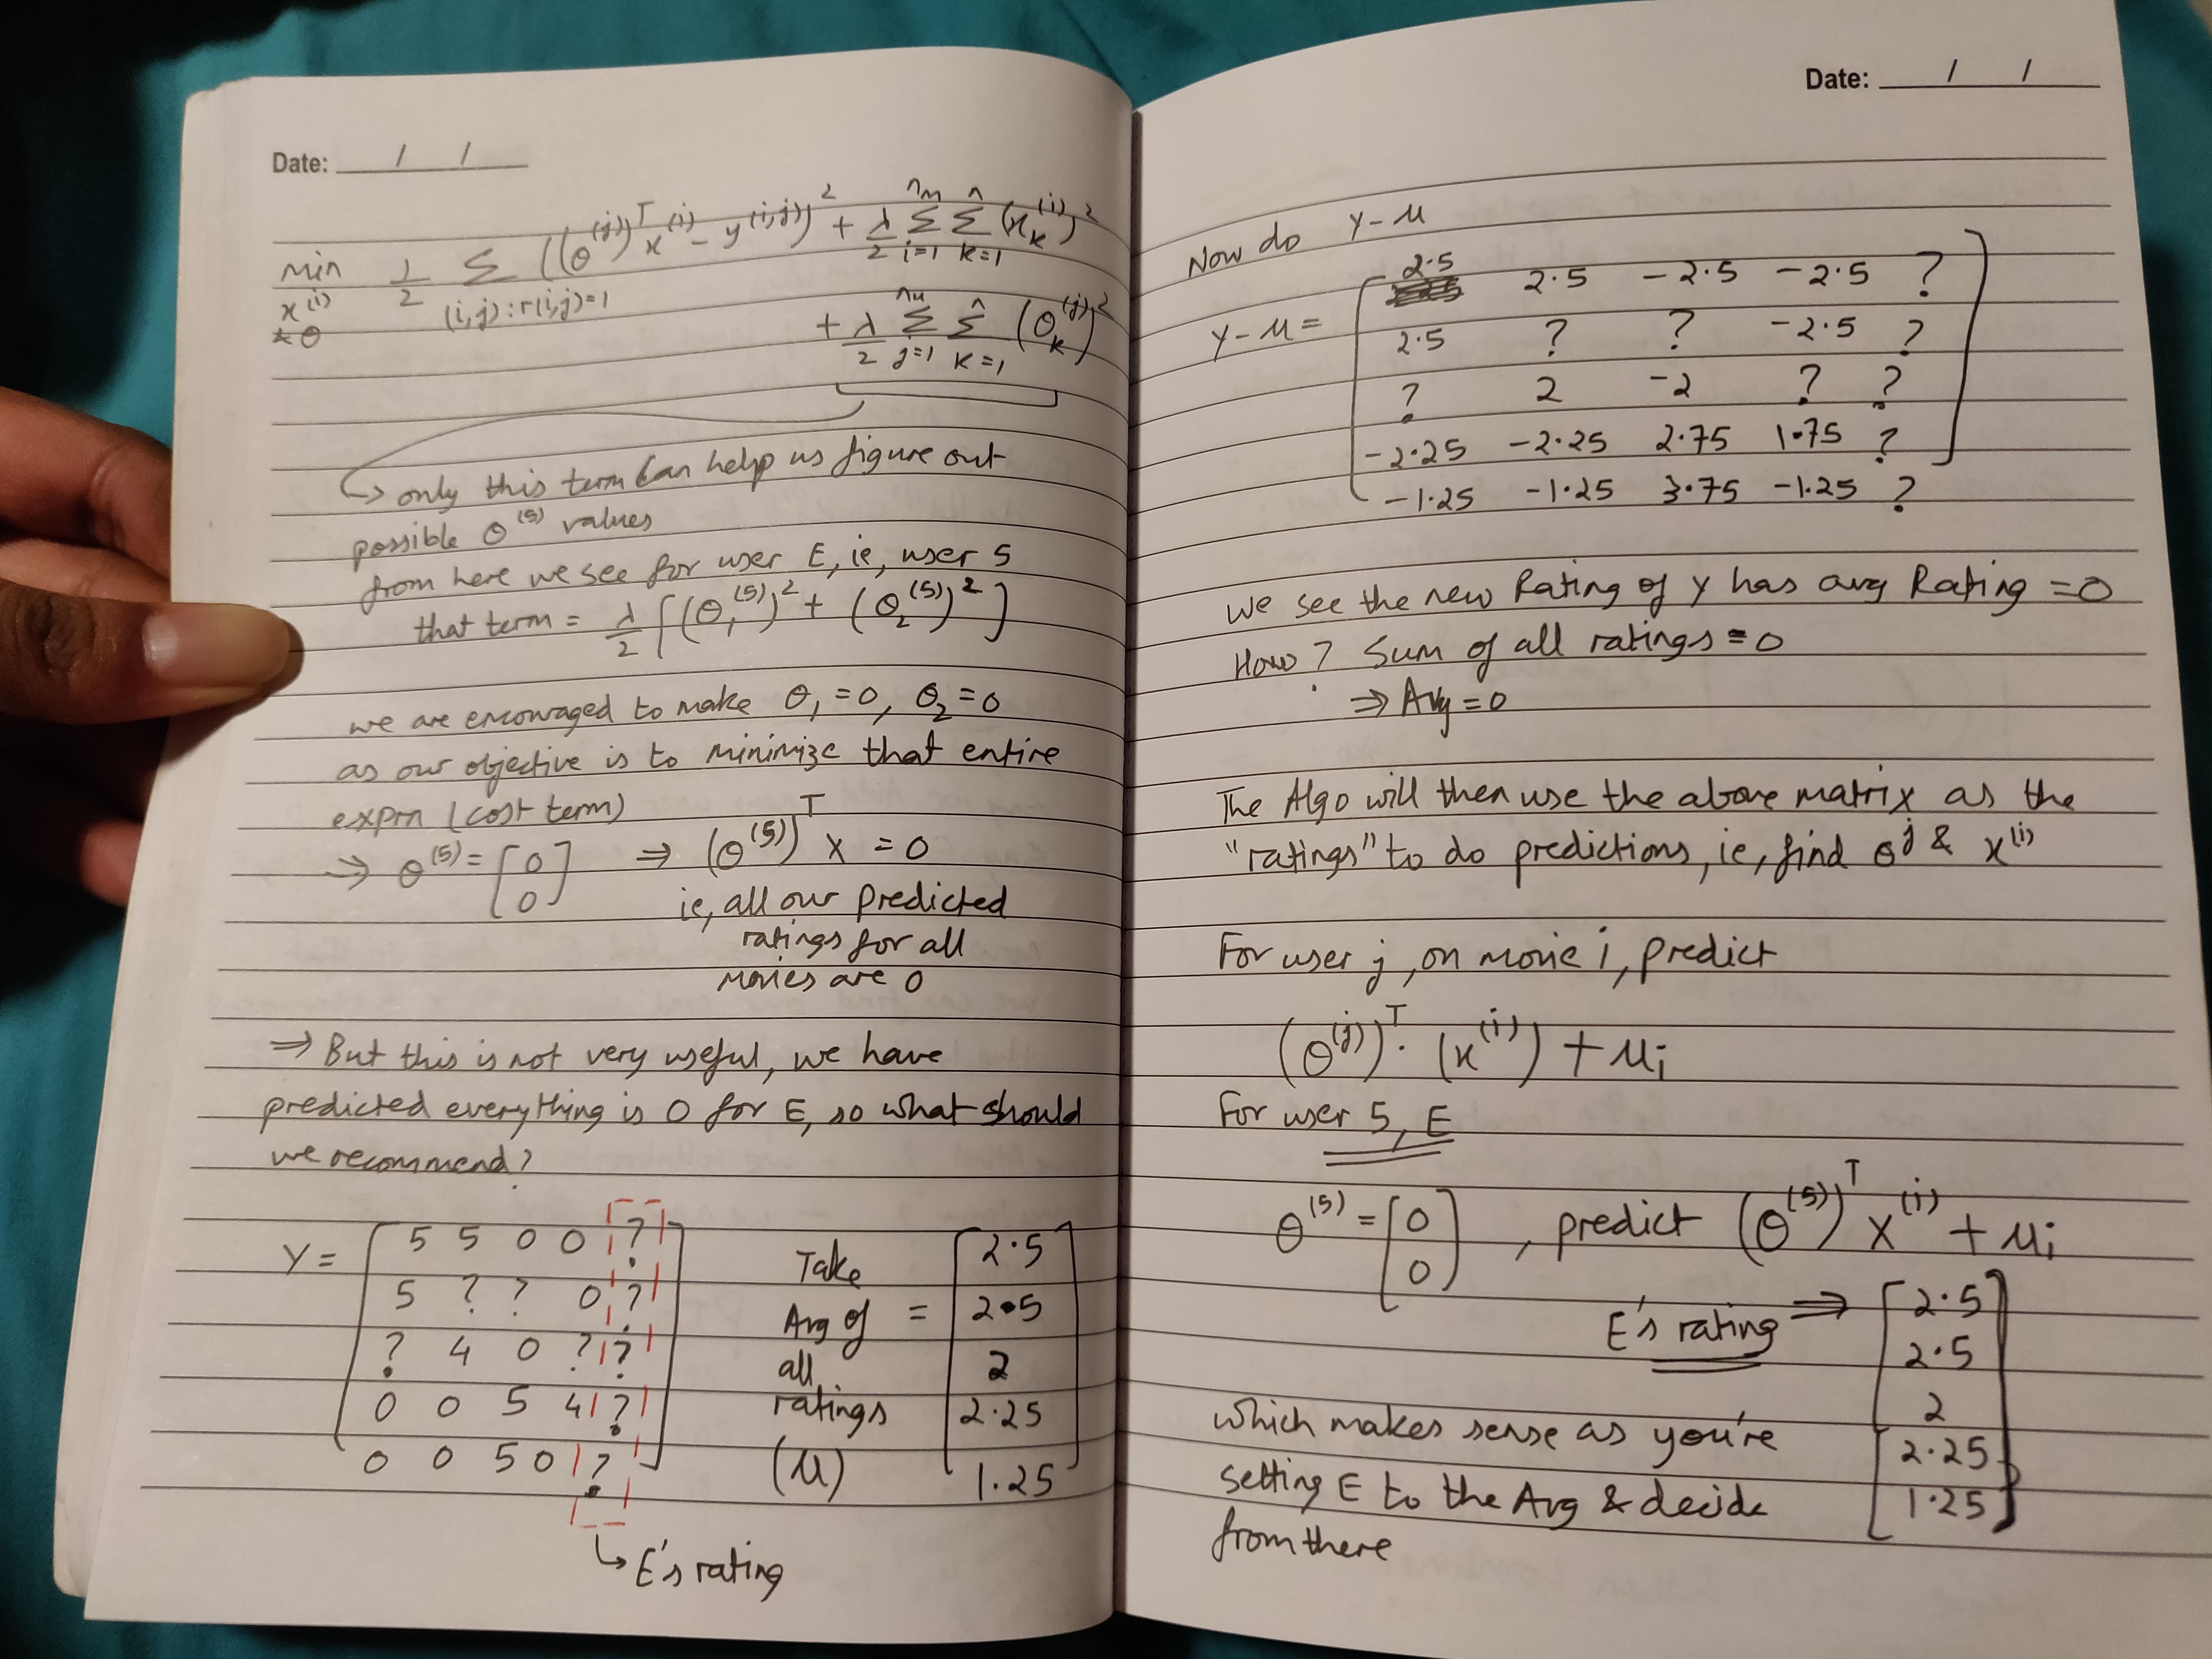 Date: / /
min x⁽ⁱ⁾ & θ 1/2 Σ (i,j):r(i,j)=1 ((θ⁽ʲ⁾)ᵀx⁽ⁱ⁾ - y⁽ⁱ,ʲ⁾)² + λ/2 Σ i=1 nm Σ k=1 n (xₖ⁽ⁱ⁾)²
+ λ/2 Σ j=1 nu Σ k=1 n (θₖ⁽ʲ⁾)²
↳ only this term can help us figure out
possible θ⁽⁵⁾ values
from here we see for user E, ie, user 5
that term = λ/2 [(θ₁⁽⁵⁾)² + (θ₂⁽⁵⁾)²]
we are encouraged to make θ₁ = 0, θ₂ = 0
as our objective is to minimize that entire
exprn (cost term)
⇒ θ⁽⁵⁾ = [0 0] ⇒ (θ⁽⁵⁾)ᵀ x = 0
ie, all our predicted
ratings for all
movies are 0
⇒ But this is not very useful, we have
predicted everything is 0 for E, so what should
we recommend?
Y = [ 5 5 0 0 ?
5 ? ? 0 ?
? 4 0 ? ?
0 0 5 4 ?
0 0 5 0 ? ]
↳ E's rating
Take
Avg of =
all
ratings
(μ)
[ 2.5
2.5
2
2.25
1.25 ]
Date: / /
Now do Y - μ
Y - μ = [ 2.5 2.5 -2.5 -2.5 ?
2.5 ? ? -2.5 ?
? 2 -2 ? ?
-2.25 -2.25 2.75 1.75 ?
-1.25 -1.25 3.75 -1.25 ? ]
We see the new Rating of Y has avg Rating = 0
How? Sum of all ratings = 0
⇒ Avg = 0
The Algo will then use the above matrix as the
"ratings" to do predictions, ie, find θʲ & x⁽ⁱ⁾
For user j, on movie i, predict
(θ⁽ʲ⁾)ᵀ. (x⁽ⁱ⁾) + μᵢ
For user 5, E
θ⁽⁵⁾ = [0 0] , predict (θ⁽⁵⁾)ᵀ x⁽ⁱ⁾ + μᵢ
E's rating ⇒ [ 2.5
2.5
2
2.25
1.25 ]
which makes sense as you're
setting E to the Avg & decide
from there